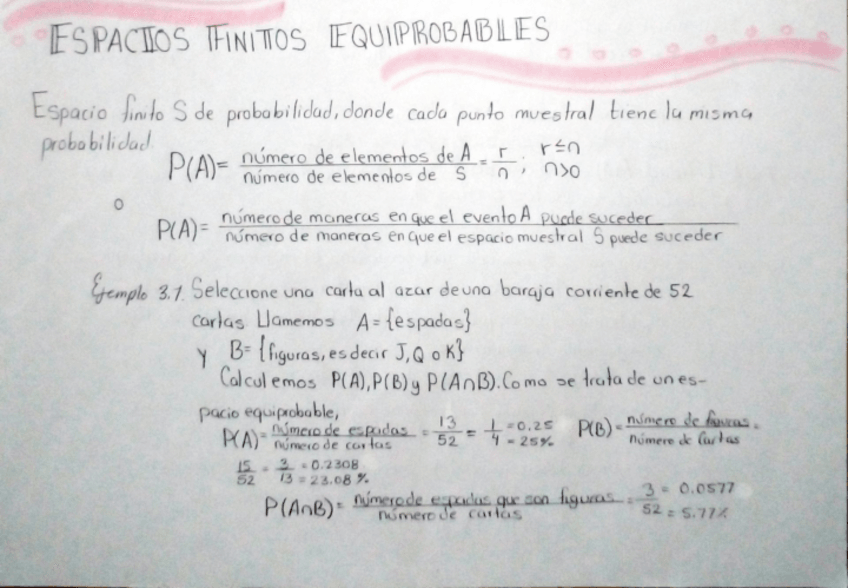 ESPACIOS FINITOS EQUIPROBABLES
Espacio finito S de probabilidad, donde cada punto muestral tiene la misma
probabilidad.
P(A)= número de elementos de A / número de elementos de S = r/n ; r≤n n>0
o
P(A)= número de maneras en que el evento A puede suceder / número de maneras en que el espacio muestral S puede suceder
Ejemplo 3.1. Seleccione una carta al azar de una baraja corriente de 52
cartas Llamemos A={espadas}
y B={figuras, es decir J,Q o K}
Calculemos P(A), P(B) y P(A∩B). Como se trata de un es-
pacio equiprobable,
P(A)= número de espadas / número de cartas = 13/52 = 1/4 =0.25 =25% P(B)= número de figuras / número de Cartas =
15/52 = 3/13 =0.2308 =23.08 %
P(A∩B)= número de espadas que son figuras / número de cartas = 3/52 = 0.0577 = 5.77%